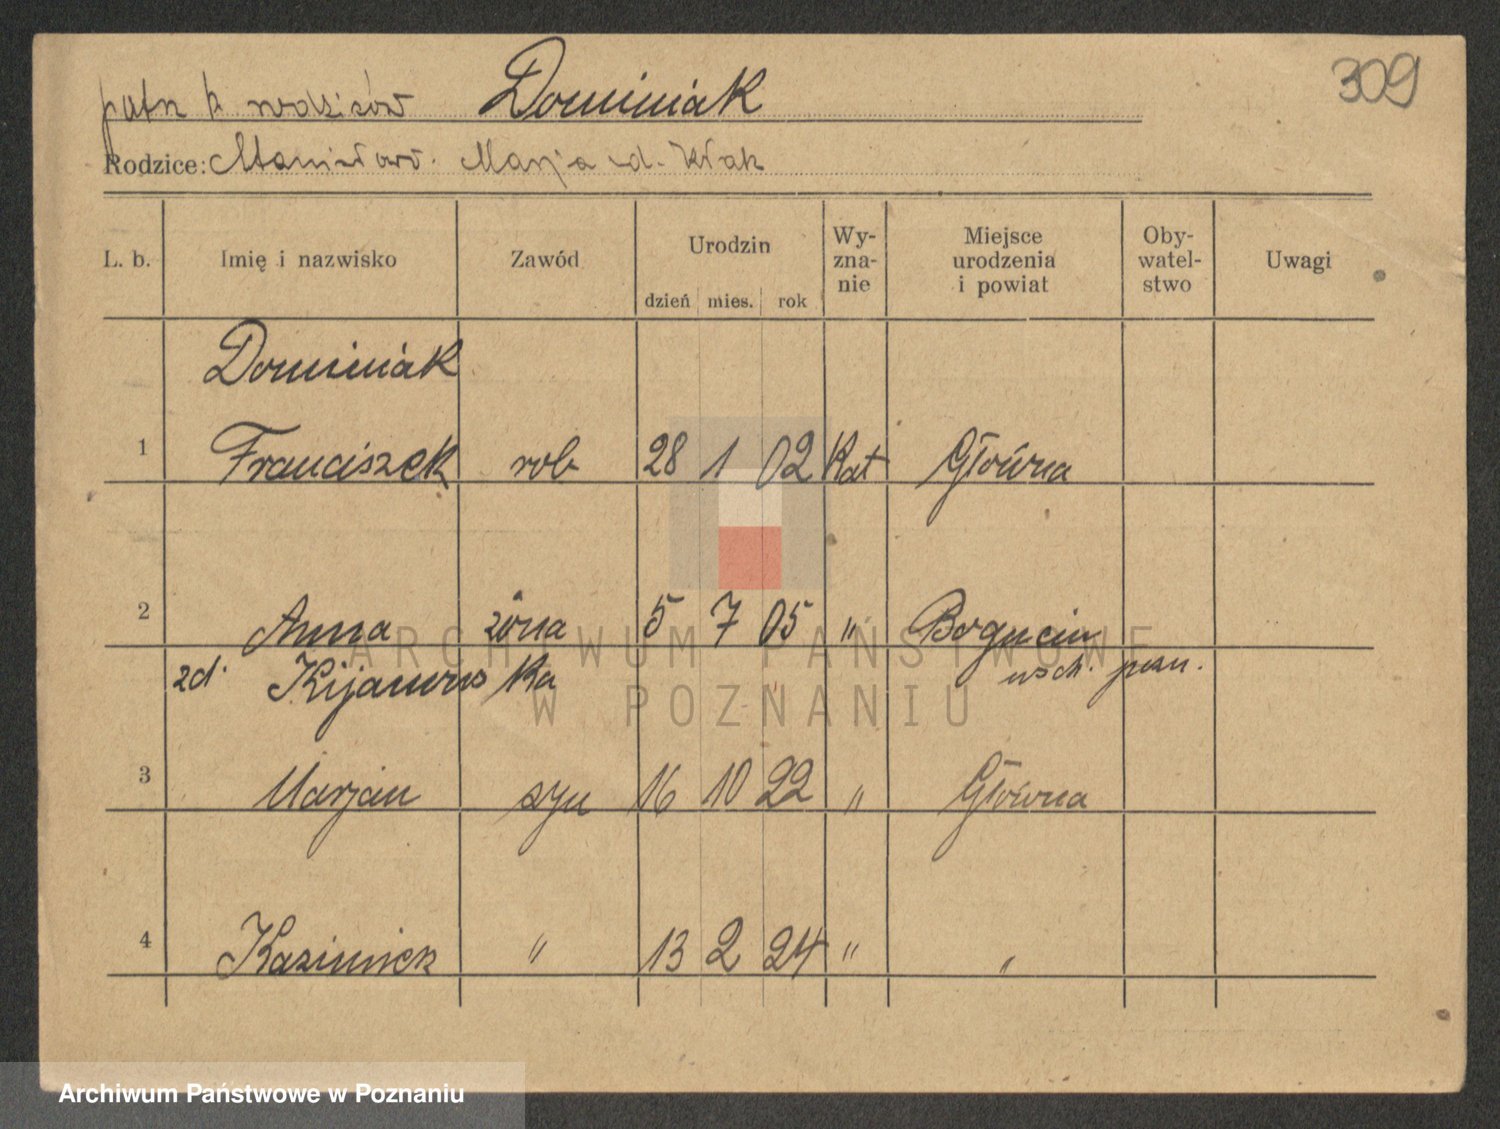 309
patrz k. rodziców Dominiak
Rodzice: Stanisław. Marja zd. Kłak
L. b. Imię i nazwisko Zawód Urodzin dzień mies. rok Wy-zna-nie Miejsce urodzenia i powiat Oby-watel-stwo Uwagi
Dominiak
1 Franciszek rob 28 1 02 Kat Główna
2 Anna żona 5 7 05 " Bogucin
zd. Kijanowska wsch. pozn.
3 Marjan syn 16 10 22 " Główna
4 Kazimierz " 13 2 24 " "
ARCHIWUM PAŃSTWOWE
W POZNANIU
Archiwum Państwowe w Poznaniu